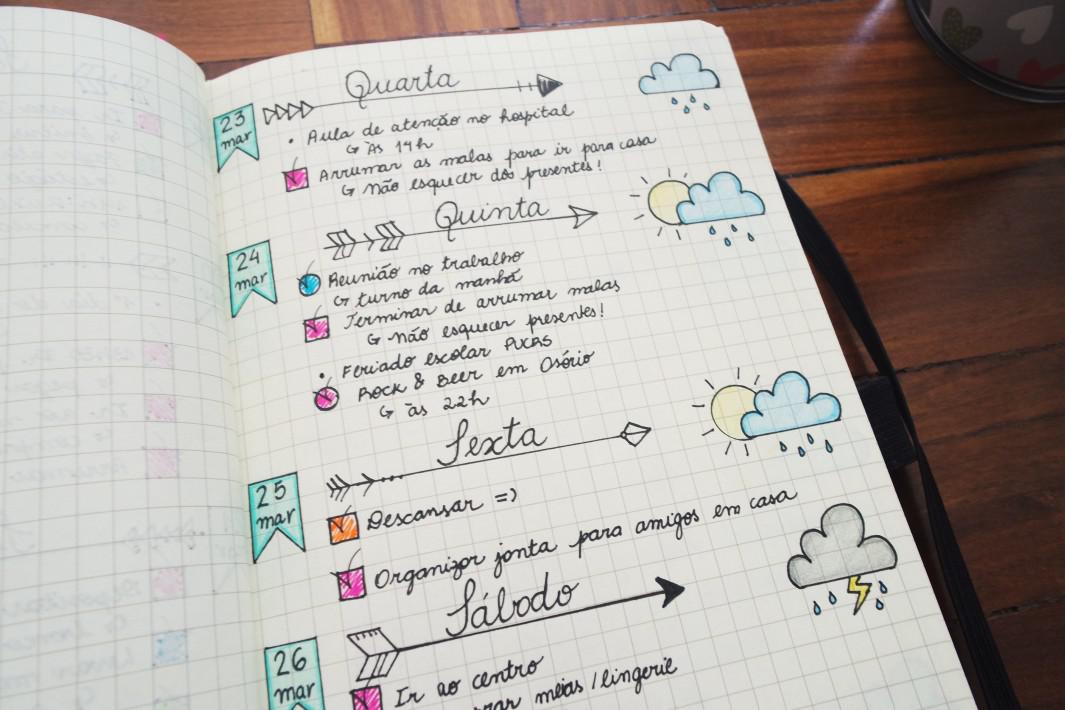 Quarta
23
mar
• Aula de atenção no hospital
↳ Às 14h
Arrumar as malas para ir para casa
↳ não esquecer dos presentes!
Quinta
24
mar
Reunião no trabalho
↳ turno da manhã
Terminar de arrumar malas
↳ não esquecer presentes!
• Feriado escolar PUCRS
Rock & Beer em Osório
↳ às 22h
Sexta
25
mar
Descansar =)
Organizar janta para amigos em casa
Sábado
26
mar
Ir ao centro
meias / lingerie